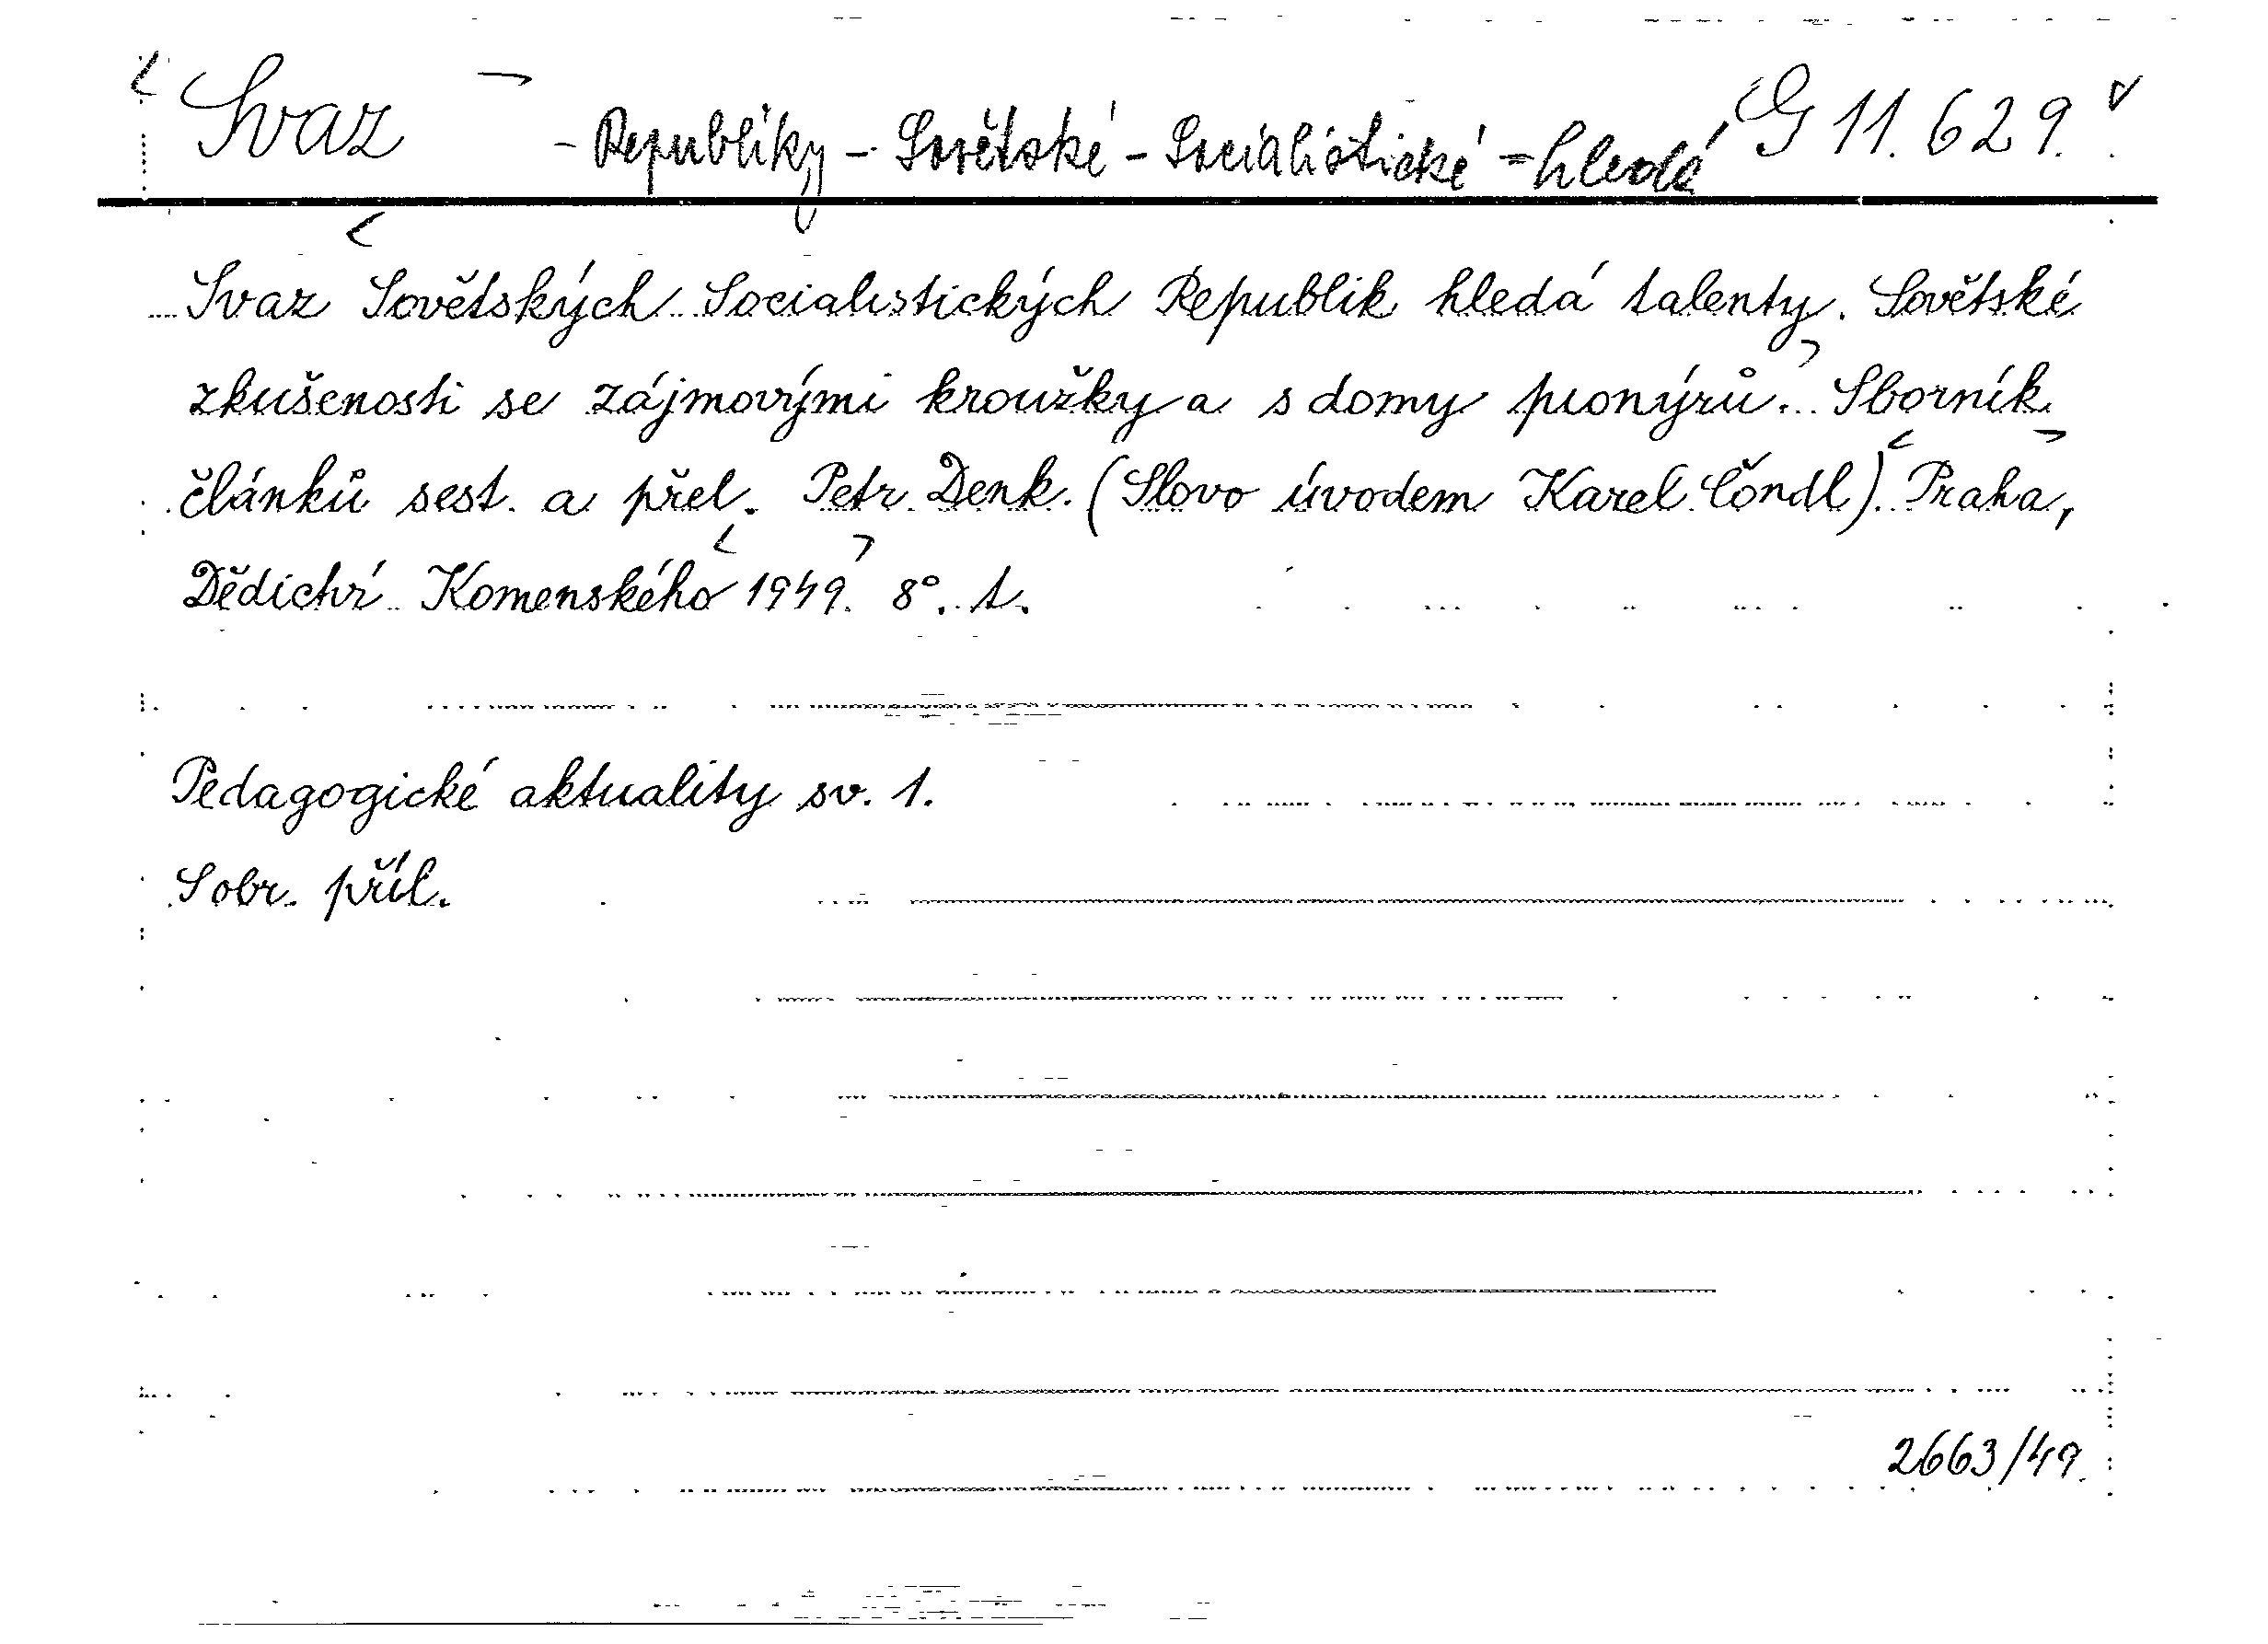 Svaz - Republiky - Sovětské - Socialistické = hledá G 11.629.
Svaz Sovětských Socialistických Republik hledá talenty. Sovětské
zkušenosti se zájmovými kroužky a s domy pionýrů. Sborník
článků sest. a přel. Petr Denk. (Slovo úvodem Karel Čondl). Praha,
Dědictví Komenského 1949. 8°. 1.
Pedagogické aktuality sv. 1.
S obr. příl.
2663/49